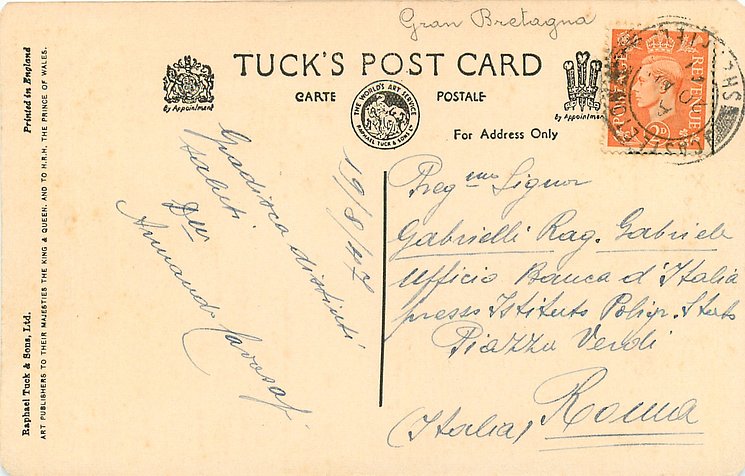 Gran Bretagna
TUCK'S POST CARD
CARTE POSTALE
By Appointment
THE WORLD'S ART SERVICE
RAPHAEL TUCK & SONS LTD
By Appointment
For Address Only
POSTAGE
REVENUE
2D
Printed in England
Raphael Tuck & Sons, Ltd.
ART PUBLISHERS TO THEIR MAJESTIES THE KING & QUEEN, AND TO H.R.H. THE PRINCE OF WALES.
19/8/47
Gradisca distinti
saluti
Dev
Armando
Preg mo Signor
Gabrielli Rag. Gabriele
Ufficio Banca d'Italia
presso Istituto Poligr. Stato
Piazza Verdi
(Italia) Roma